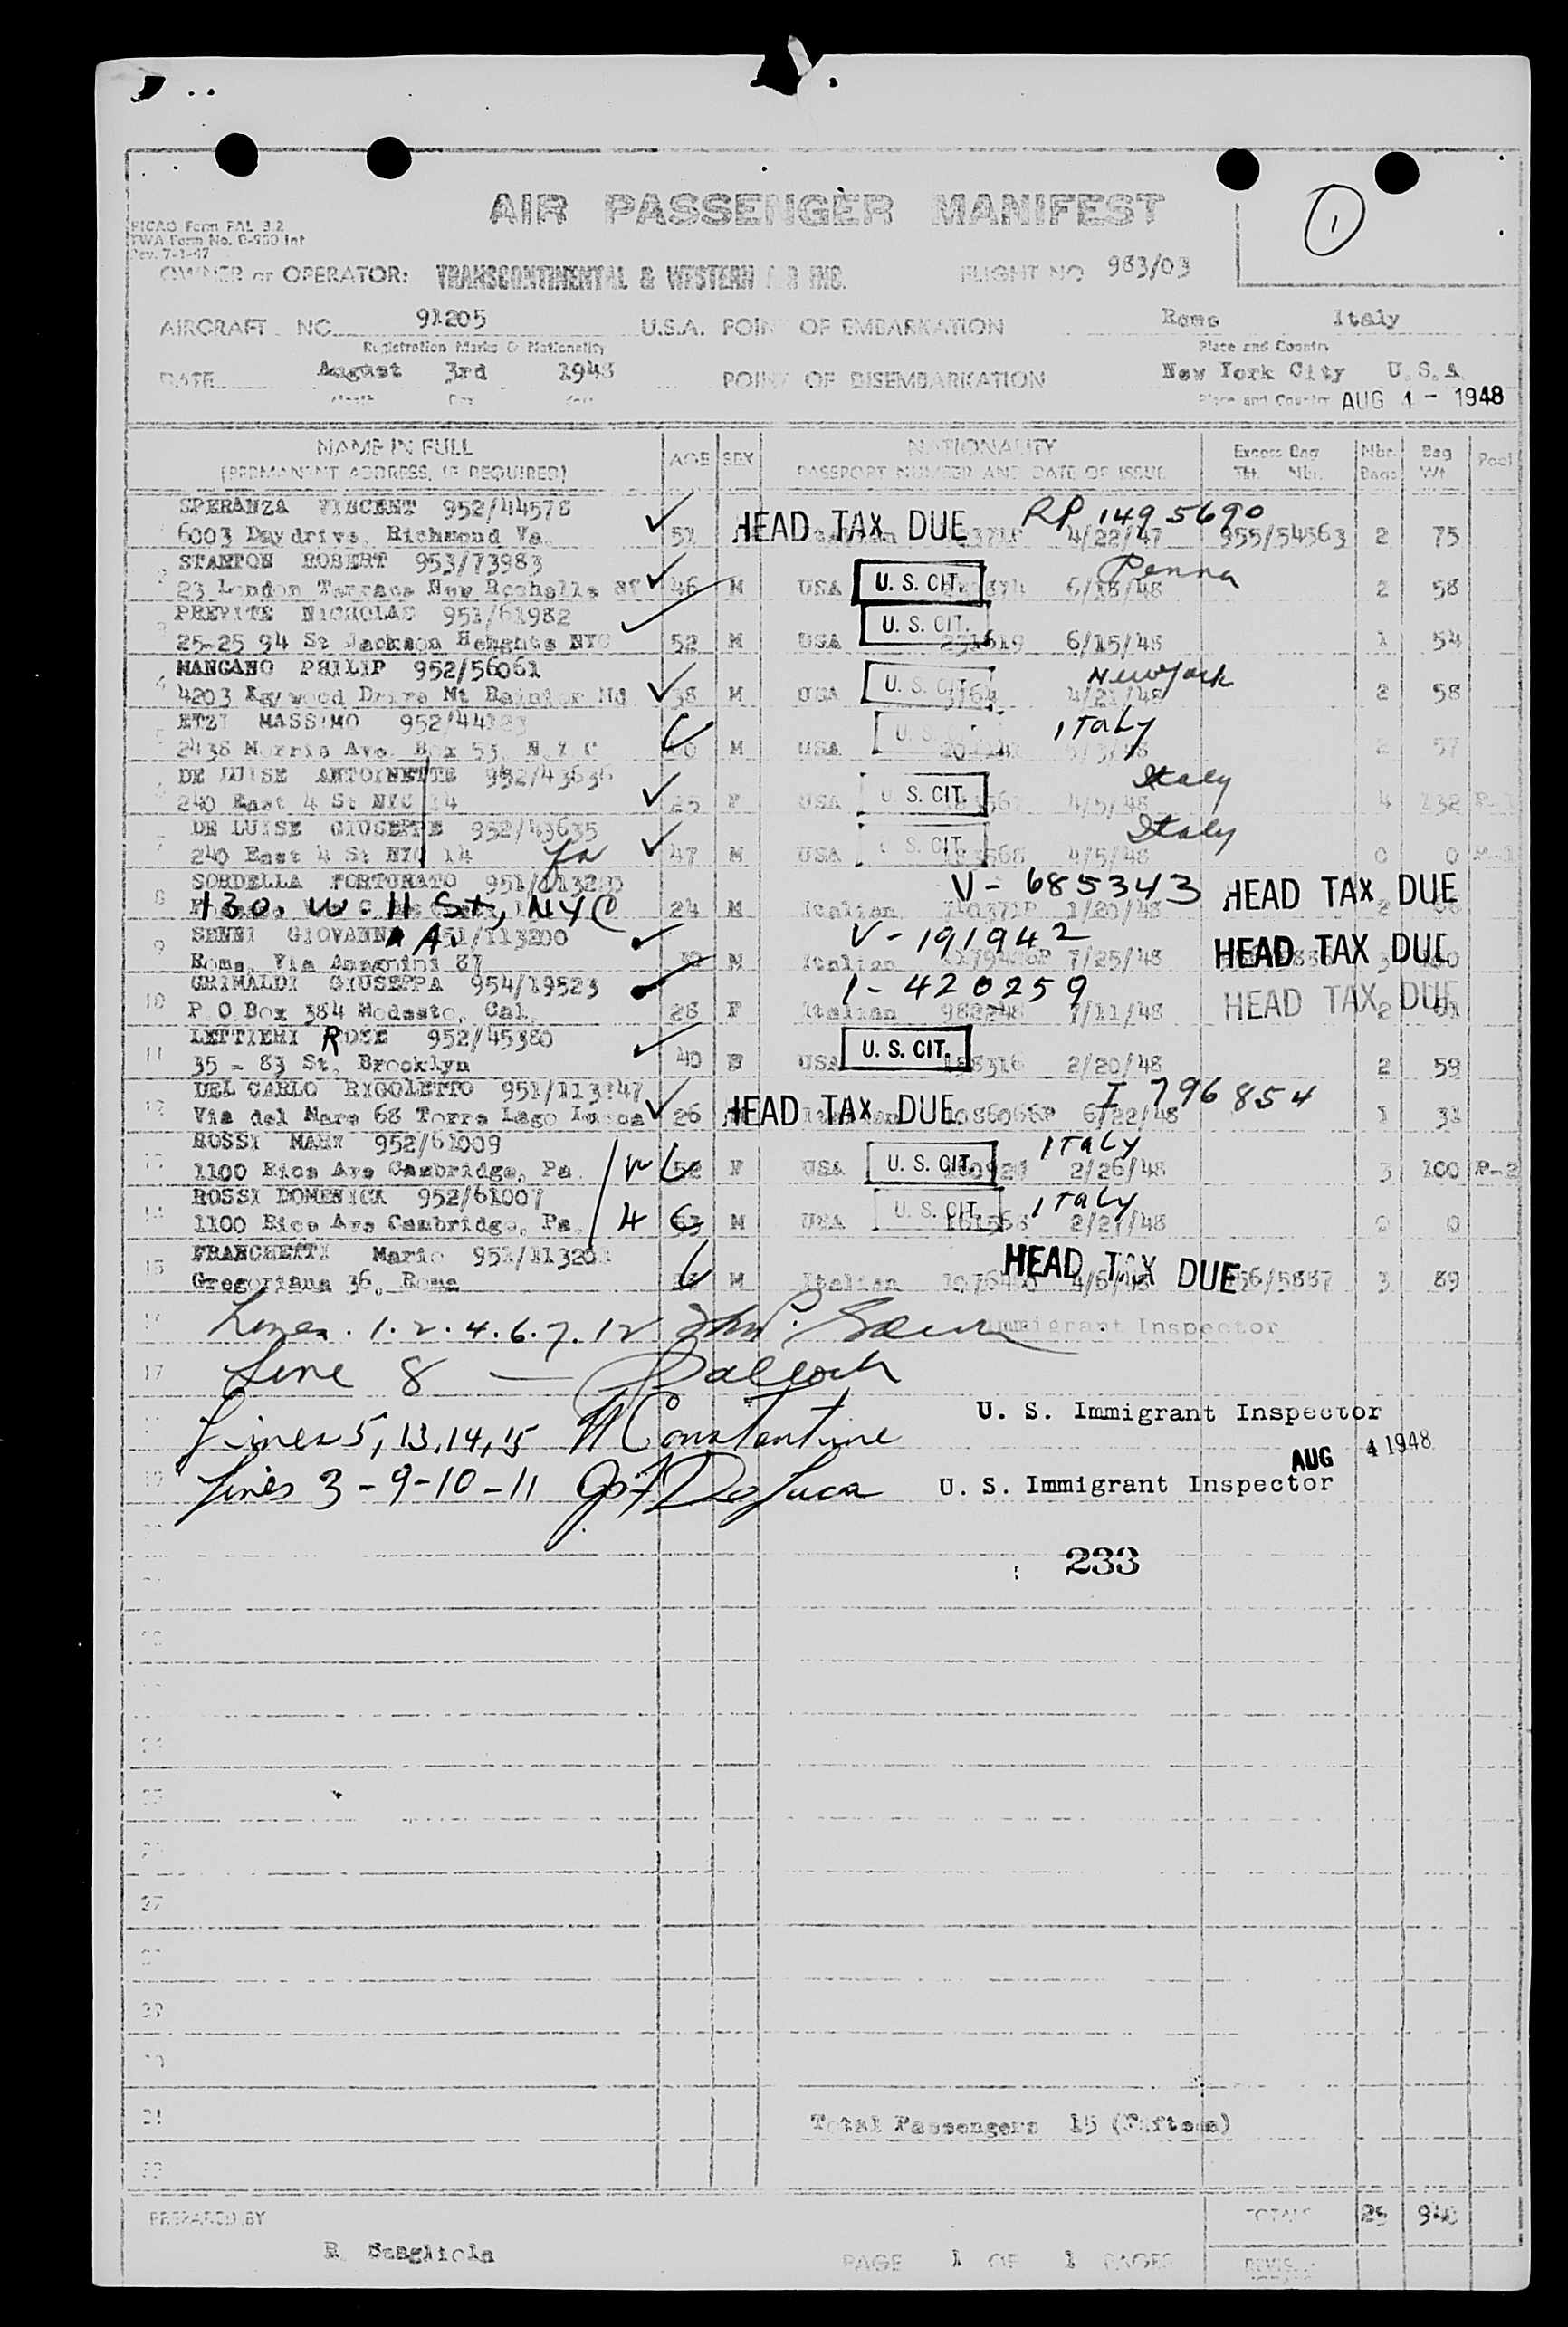 AIR PASSENGER MANIFEST
1
PICAO Form FAL 3.2
TWA Form No. 0-950 Int
Rev. 7-1-47
OWNER or OPERATOR: TRANSCONTINENTAL & WESTERN AIR INC. FLIGHT NO 983/03
AIRCRAFT NO. 91205 U.S.A. POINT OF EMBARKATION Rome Italy
Registration Marks & Nationality Place and Country
DATE August 3rd 1948 POINT OF DISEMBARKATION New York City U.S.A.
Month Day Place and Country AUG 4 - 1948
NAME IN FULL AGE SEX NATIONALITY Excess Bag Nbr. Bag Pool
(PERMANENT ADDRESS, IF REQUIRED) PASSPORT NUMBER AND DATE OF ISSUE Tkt. Nbr. Bags Wt.
SPERANZA VINCENT 952/44578 RP 1495690
6003 Daydrive, Richmond Va. 51 HEAD TAX DUE 4/22/47 955/54563 2 75
STANTON ROBERT 953/73983 Penna
23 London Terrace New Rochelle NY 46 M USA U. S. CIT. 6/18/48 2 58
PREVITE NICHOLAS 951/61982
25-25 94 St Jackson Heights NYC 52 M USA U. S. CIT. 231619 6/15/48 1 54
MANGANO PHILIP 952/56061 New York
4 4203 Mt Rainier Md 38 M USA U. S. CIT. 4/21/48 2 58
ETZI MASSIMO 952/44123 Italy
2438 Morris Ave. Box 53, N.Y.C M USA U. S. 2 57
DE LUISE ANTOINETTE 952/43636 Italy
240 East 4 St NYC 14 25 F USA U. S. CIT. 4/5/48 4 132
DE LUISE GIUSEPPE 952/43635 Italy
7 240 East 4 St NYC 14 47 M USA U. S. CIT. 4/5/48 0 0
SORDELLA FORTUNATO V- 685343 HEAD TAX DUE
8 130. W. 11 St, NYC 24 M Italian 740371P 1/20/48 2
SENNI GIOVANNI A. 951/113200 V-191942 HEAD TAX DUE
9 Rome, Via 87 M Italian 7/25/48 3
GRIMALDI GIUSEPPA 954/19523 1-420259
10 P.O.Box 384 Modesto, Cal. 28 F Italian 982248 7/11/48 HEAD TAX DUE 2
LETTIERI ROSE 952/45380
11 35 - 83 St. Brooklyn 40 USA U. S. CIT. 2/20/48 2 59
DEL CARLO RIGOLETTO 951/113147 I 796854
12 Via del Mare 68 Torre Lago 26 HEAD TAX DUE 6/22/48 1 31
ROSSI MARY 952/61009 Italy
1100 Rice Ave Cambridge, Pa. 52 F USA U. S. CIT. 2/26/48 3 100 P-2
ROSSI DOMENICK 952/61007 Italy
14 1100 Rice Ave Cambridge, Pa. 4 53 M USA U. S. CIT. 2/27/48 0 0
FRANCHETTI Mario HEAD TAX DUE
15 Gregoriana 36, Rome M Italian 4/6/48 3 89
Lines. 1. 2. 4. 6. 7. 12 Immigrant Inspector
17 Line 8 —
U. S. Immigrant Inspector
Lines 5, 13, 14, 15 Constantine
AUG 4 1948
Lines 3 - 9 - 10 - 11 DeLuca U. S. Immigrant Inspector
233
27
Total Passengers 15 (Fifteen)
PREPARED BY TOTALS 25 940
R. Scagliola
PAGE 1 OF 1 PAGES